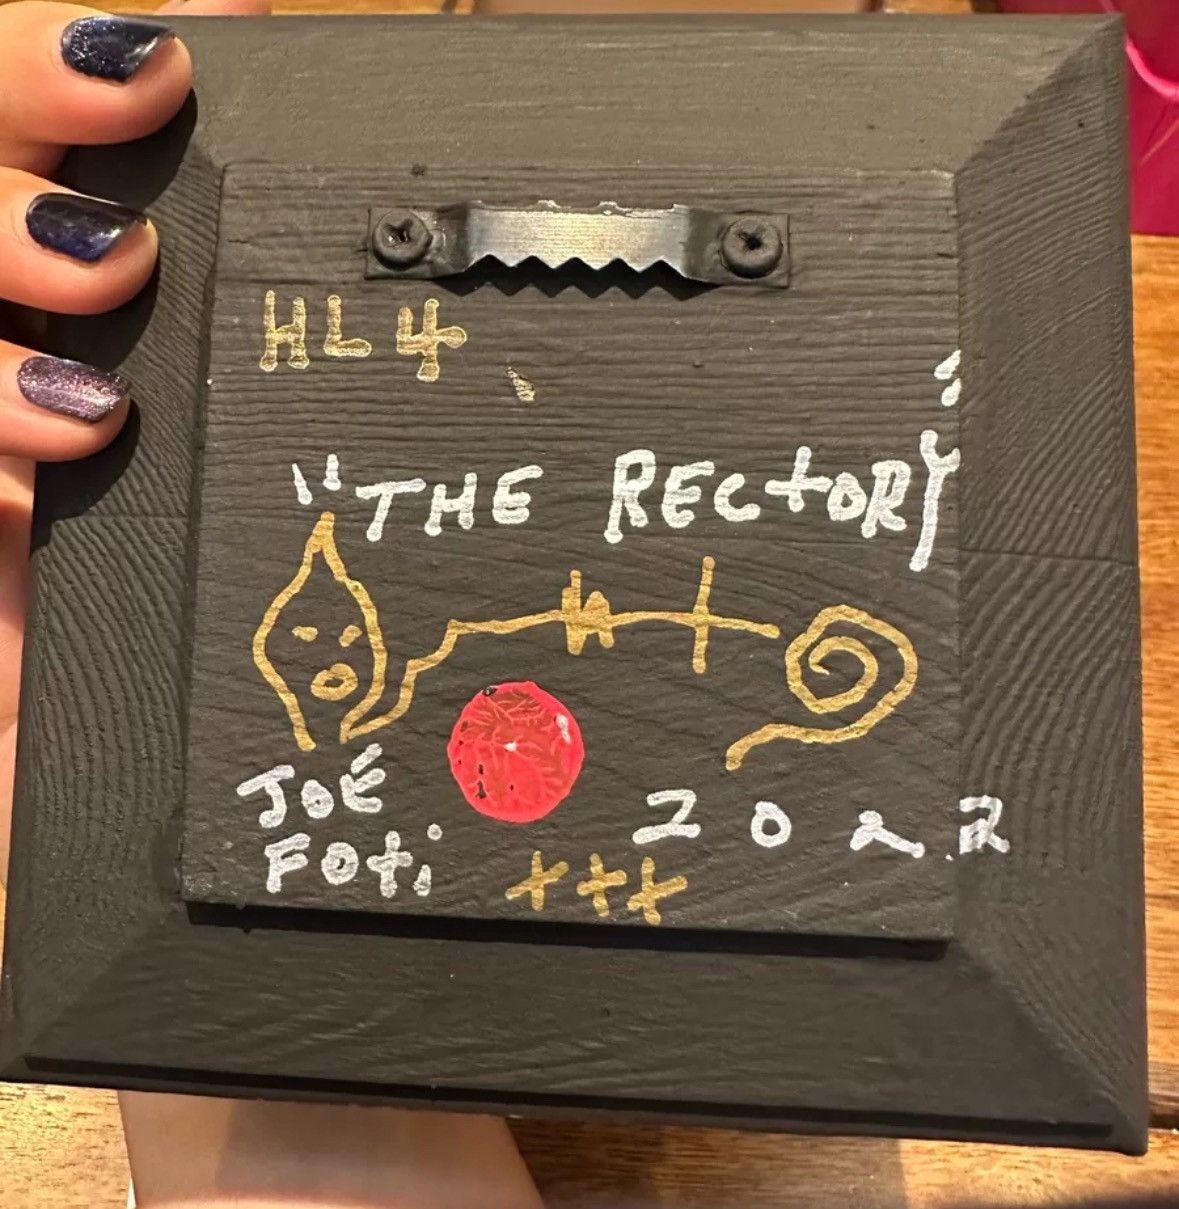 HL4
"THE RECTORY"
JOE
FOTI
2022
+++